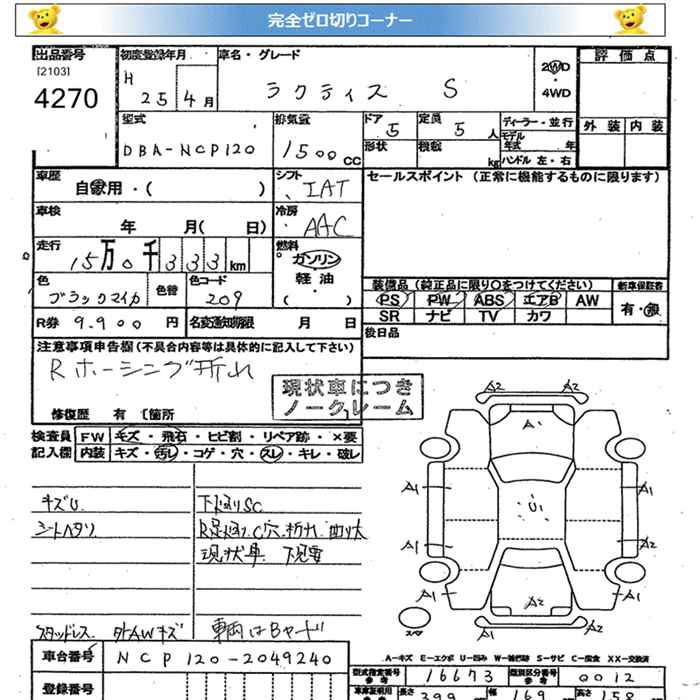 完全ゼロ切りコーナー
出品番号
[2103]
4270
初度登録年月
H 25 4月
車名・グレード
ラクティス S
2WD
4WD
評価点
外装 内装
型式
DBA-NCP120
排気量
1500cc
ドア 5
形状
定員 5人
積載 kg
ディーラー・並行
モデル年式 年
ハンドル 左・右
車歴
自家用・( )
シフト
IAT
セールスポイント (正常に機能するものに限ります)
車検
年 月( 日)
冷房
AAC
走行
15万0千333km
燃料
ガソリン
軽油
( )
色
ブラックマイカ
色替
色コード
209
装備品 (純正品に限り○をつけてください)
PS PW ABS エアB AW
SR ナビ TV カワ
新車保証書
有・無
R券 9.900円
名変通知期限 月 日
後日品
注意事項申告欄(不具合内容等は具体的に記入して下さい)
Rホーシング折れ
現状車につき
ノークレーム
修復歴 有 [箇所
検査員
記入欄
FW キズ・飛石・ヒビ割・リペア跡・×要
内装 キズ・汚レ・コゲ・穴・スレ・キレ・破レ
キズU.
シートヘタリ
下廻りSC
現状車
スタッドレス. 外AWキズ 車両はBヤード
A2 A2
A1 A1
A1 A2
A1 A1
U1
A1
A2
スペア
A-キズ E-エクボ U-凹み W-補修跡 S-サビ C-腐食 XX-交換済
車台番号 NCP120-2049240
型式指定番号 参考 16673
類別区分番号 参考 0012
登録番号
車庫証明用 長さ 399 幅 169 高さ 158